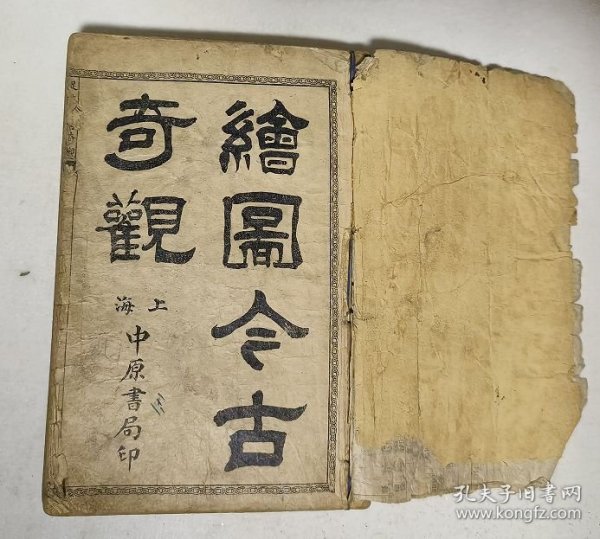 繪圖今古
奇觀
上海
中原書局印
孔夫子旧书网
www.kongfz.com